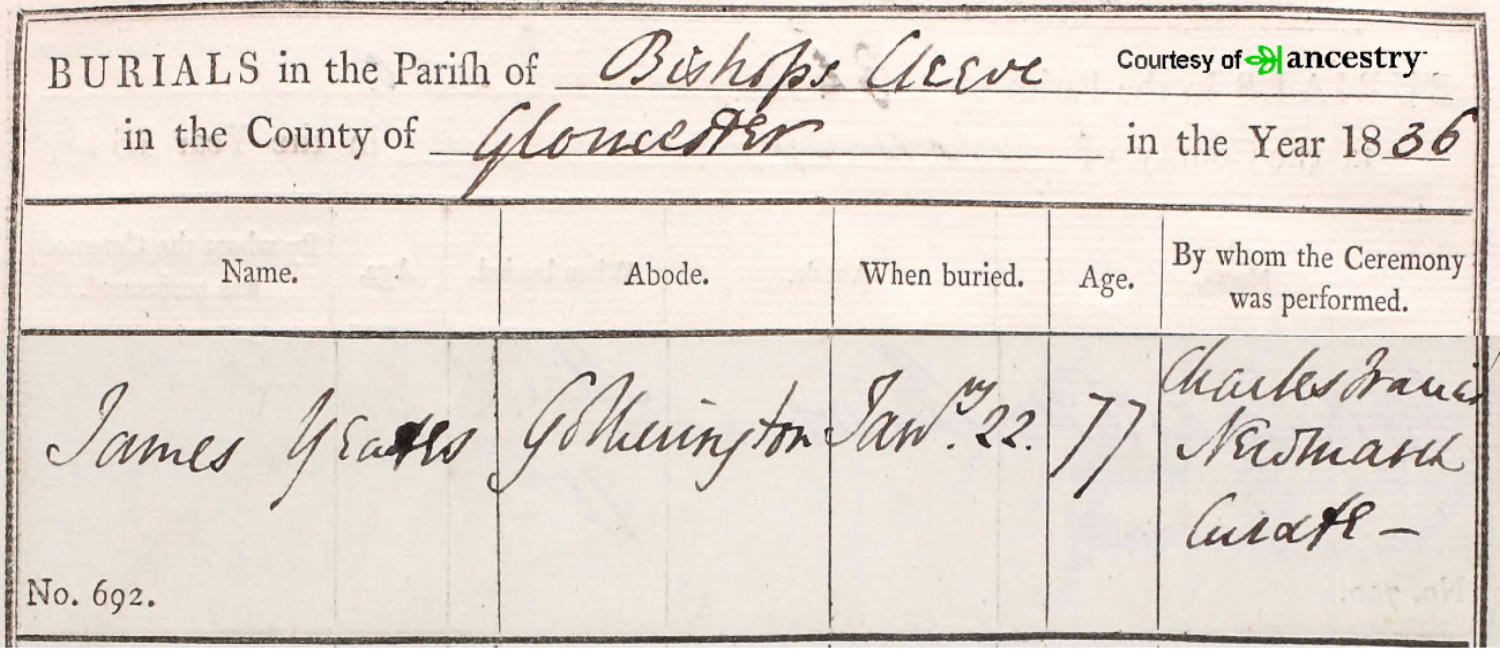 BURIALS in the Pariſh of Bishops Cleeve
Courtesy of ancestry
in the County of Gloucester in the Year 1836
Name. Abode. When buried. Age. By whom the Ceremony
was performed.
James Yeates Gotherington Janry. 22. 77 Charles Francis
Newmarch
Curate —
No. 692.